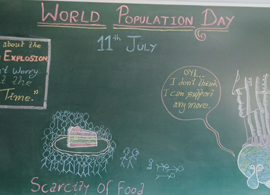 WORLD POPULATION DAY
11th JULY
about the
EXPLOSION
Worry
the
Time."
OH...
I don't think
I can support
any more.
Scarcity of Food